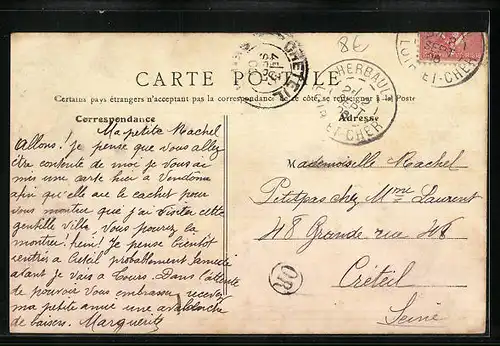 8€
CARTE POSTALE
Certains pays étrangers n'acceptant pas la correspondance de ce côté, se renseigner à la Poste
Correspondance
Adresse
CRETEIL
HERBAULT
LOIR-ET-CHER
SEPT
LOIR-ET-CHER
Ma petite Rachel
Allons! je pense que vous allez
être contente de moi je vous ai
mis une carte hier à Vendôme
afin qu'elle are le cachet pour
vous montrer que j'ai visiter cette
gentille ville. Vous pourez la
montrer! hein! Je pense bientôt
rentrer à Creteil probablement samedi
avant je vais à Tours. Dans l'attente
de pouvoir vous embrasser recevez
ma petite amie une avalanche
de baisers. Marguerite
Mademoiselle Rachel
Petitpas chez Mme Laurent
48 Grande rue 48
Créteil
Seine
OR